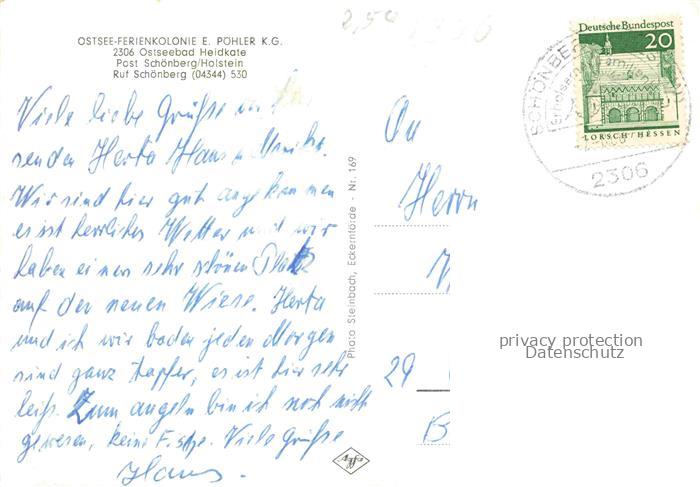 OSTSEE-FERIENKOLONIE E. PÖHLER K.G.
2306 Ostseebad Heidkate
Post Schönberg/Holstein
Ruf Schönberg (04344) 530
Viele liebe Grüße
senden Herta Hans u. Monika.
Wir sind hier gut angekommen
es ist herrliches Wetter und wir
haben einen sehr schönen Platz
auf der neuen Wiese. Herta
und ich wir baden jeden Morgen
sind ganz tapfer, es ist hier sehr
heiß. Zum angeln bin ich noch nicht
gewesen, keine Viele Grüße
Hans.
Photo Steinbach, Eckernförde - Nr. 169
Agfa
An
Herrn
29
B
2,50
Deutsche Bundespost
20
LORSCH/HESSEN
SCHÖNBERG
2306
privacy protection
Datenschutz